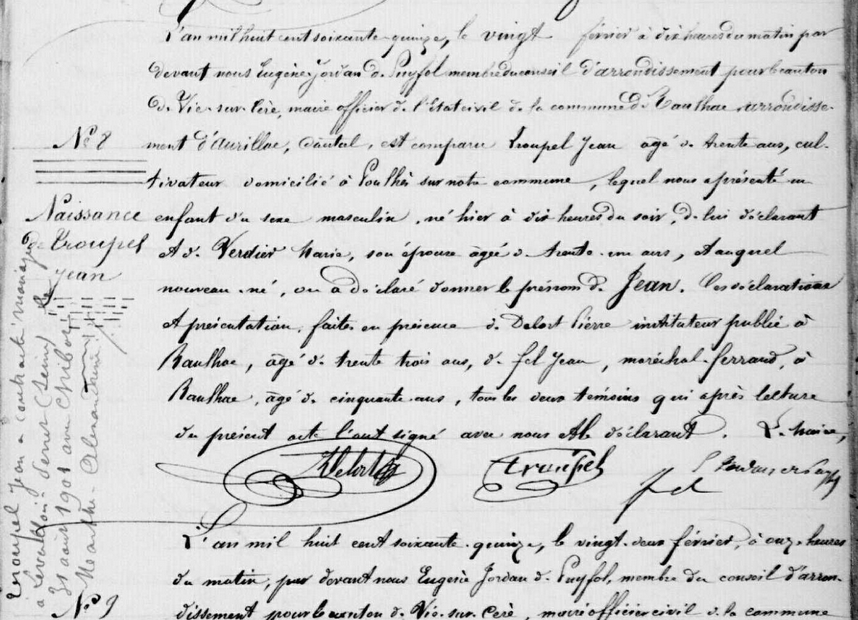 L'an mil huit cent soixante-quinze, le vingt février à dix heures du matin par
devant nous Eugène Jordan de Puyfol membre du conseil d'arrondissement pour le canton
de Vic-sur-Cère, maire officier de l'Etat civil de la commune de Raulhac arrondisse-
ment d'Aurillac, Cantal, est comparu Troupel Jean âgé de trente ans, cul-
tivateur domicilié à Poulhès sur notre commune, lequel nous a présenté un
enfant du sexe masculin, né hier à dix heures du soir, de lui déclarant
et de Verdier Marie, son épouse âgée de trente-un ans, et auquel
nouveau-né, on a déclaré donner le prénom de Jean. Ces déclarations
et présentation faites en présence de Delort Pierre instituteur public à
Raulhac, âgé de trente trois ans, de fel Jean, maréchal-ferrand, à
Raulhac, âgé de cinquante ans, tous les deux témoins qui après lecture
du présent acte l'ont signé avec nous et le déclarant. Le maire,
Delort troupel fel
No 8
Naissance
de Troupel
Jean
Troupel Jean a contracté mariage
à Levallois-Perret (Seine) le
31 août 1901 avec
Marthe Alexandrine
L'an mil huit cent soixante-quinze, le vingt-deux février, à onze heures
du matin, par devant nous Eugène Jordan de Puyfol, membre du conseil d'arron-
dissement pour le canton de Vic-sur-Cère, maire officier civil de la commune
No 9